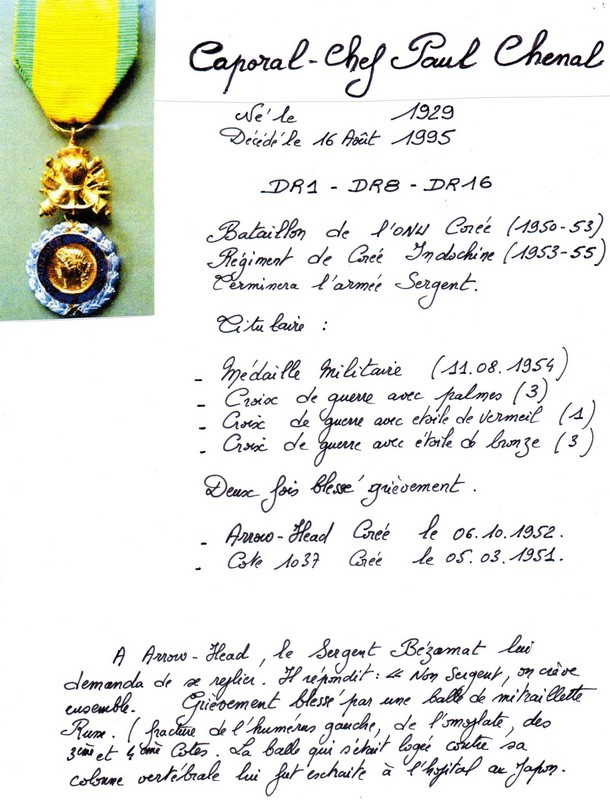 Caporal-Chef Paul Chenal
Né le 1929
Décédé le 16 Août 1995
DR1 - DR8 - DR16
Bataillon de l'ONU Corée (1950-53)
Régiment de Corée Indochine (1953-55)
Terminera l'armée Sergent.
Titulaire :
- Médaille Militaire (11.08.1954)
- Croix de guerre avec palmes (3)
- Croix de guerre avec etoile de vermeil (1)
- Croix de guerre avec étoile de bronze (3)
Deux fois blessé grièvement.
- Arrow-Head Corée le 06.10.1952.
- Cote 1037 Corée le 05.03.1951.
A Arrow-Head, le Sergent Bézamat lui
demanda de se replier. Il répondit : « Non Sergent, on crève
ensemble. Grièvement blessé par une balle de mitraillette
Russe. ( fracture de l'humérus gauche, de l'omoplate, des
3ème et 4ème Cotes. La balle qui s'était logée contre sa
colonne vertébrale lui fut extraite à l'hôpital au Japon.